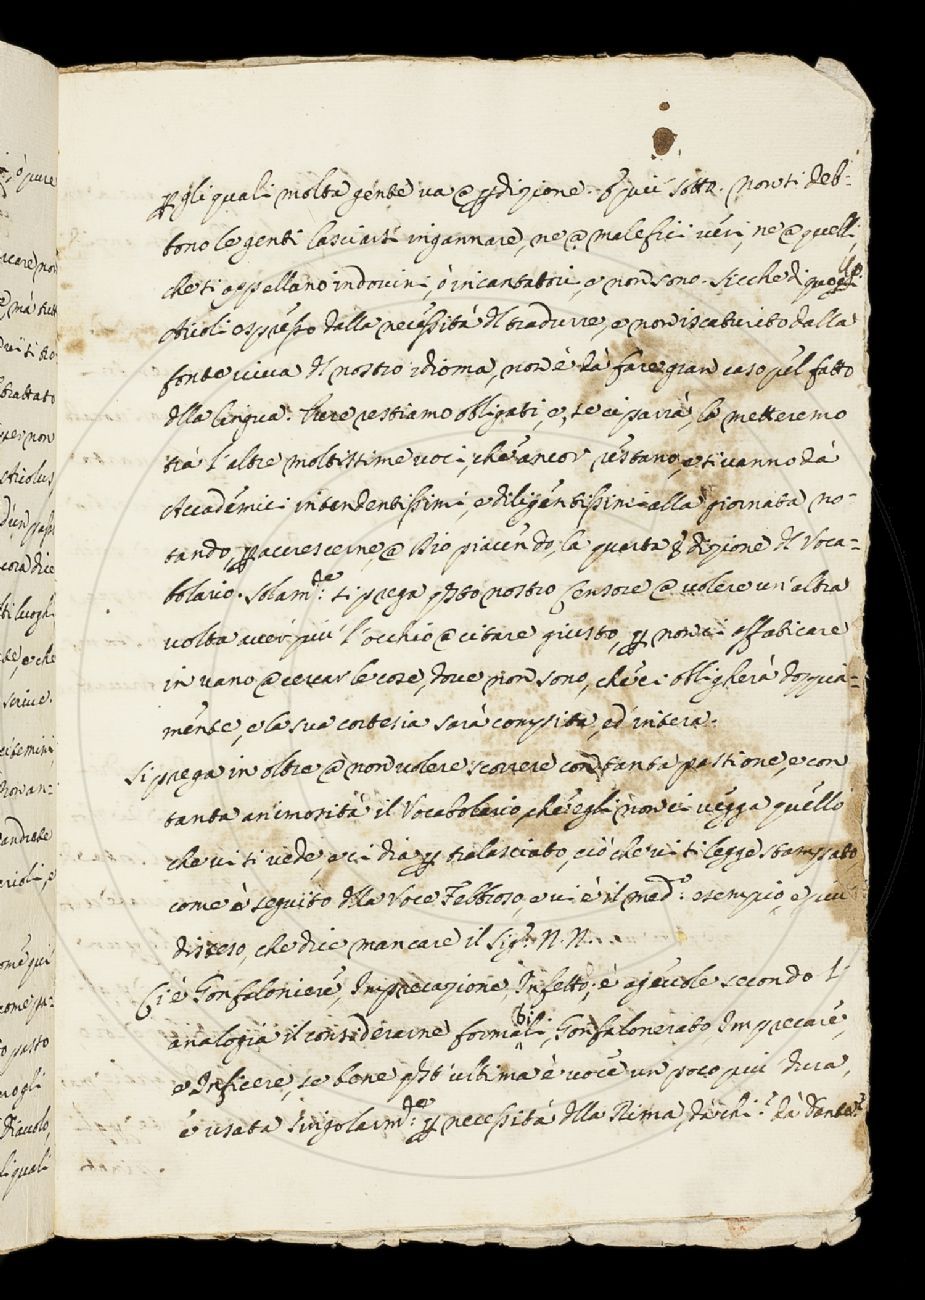 ꝑ gli quali molta gente va a ꝑdizione. E più sotto. Non si deb-
bono le genti lasciarsi ingannare, ne a malefici veri, ne a quelli,
che si appellano indovini, ò incantatori, e non sono. Sicche di
sticoli espresso dalla necessità dl tradurre, e non iscaturito dalla
fonte viva dl nostro idioma, non è da fare gran caso pel fatto
dlla lingua. Pure restiamo obligati, e, se ci parrà, le metteremo
trà l'altre moltissime voci, che ancor restano, e si vanno dà
Accademici intendentissimi, e diligentissimi alla giornata no-
tando, ꝑ accrescerne, a Dio piacendo, la quarta Edizione dl Voca-
bolario. Solamte: si prega qsto nostro Censore a volere un'altra
volta aver più l'occhio a citare giusto, ꝑ non ci affaticare
in vano a cercar le cose, dove non sono, che ci obligherà doppia-
mente, e la sua cortesia sarà compita, ed' intera.
Si prega in oltre a non volere scorrere con tanta passione, e con
tanta animosità il Vocabolario, che egli non ci vegga quello
che vi si vede, e ci dia ꝑ tralasciato, ciò che vi si legge stampato
come è seguito dlla Voce Febbroso, e vi è il medo: esempio, e più
disteso, che dice mancare il Sigr: N. N.
Ci è Gonfaloniere, Imprecazione, Infetto; è agevole secondo l'
analogia il considerarne formati, Gonfalonerato Imprecare,
e Inficere, se bene qst'ultima è voce un poco più dura,
é usata singolarmte: ꝑ necessità dlla Rima, dà chi: dà Dante